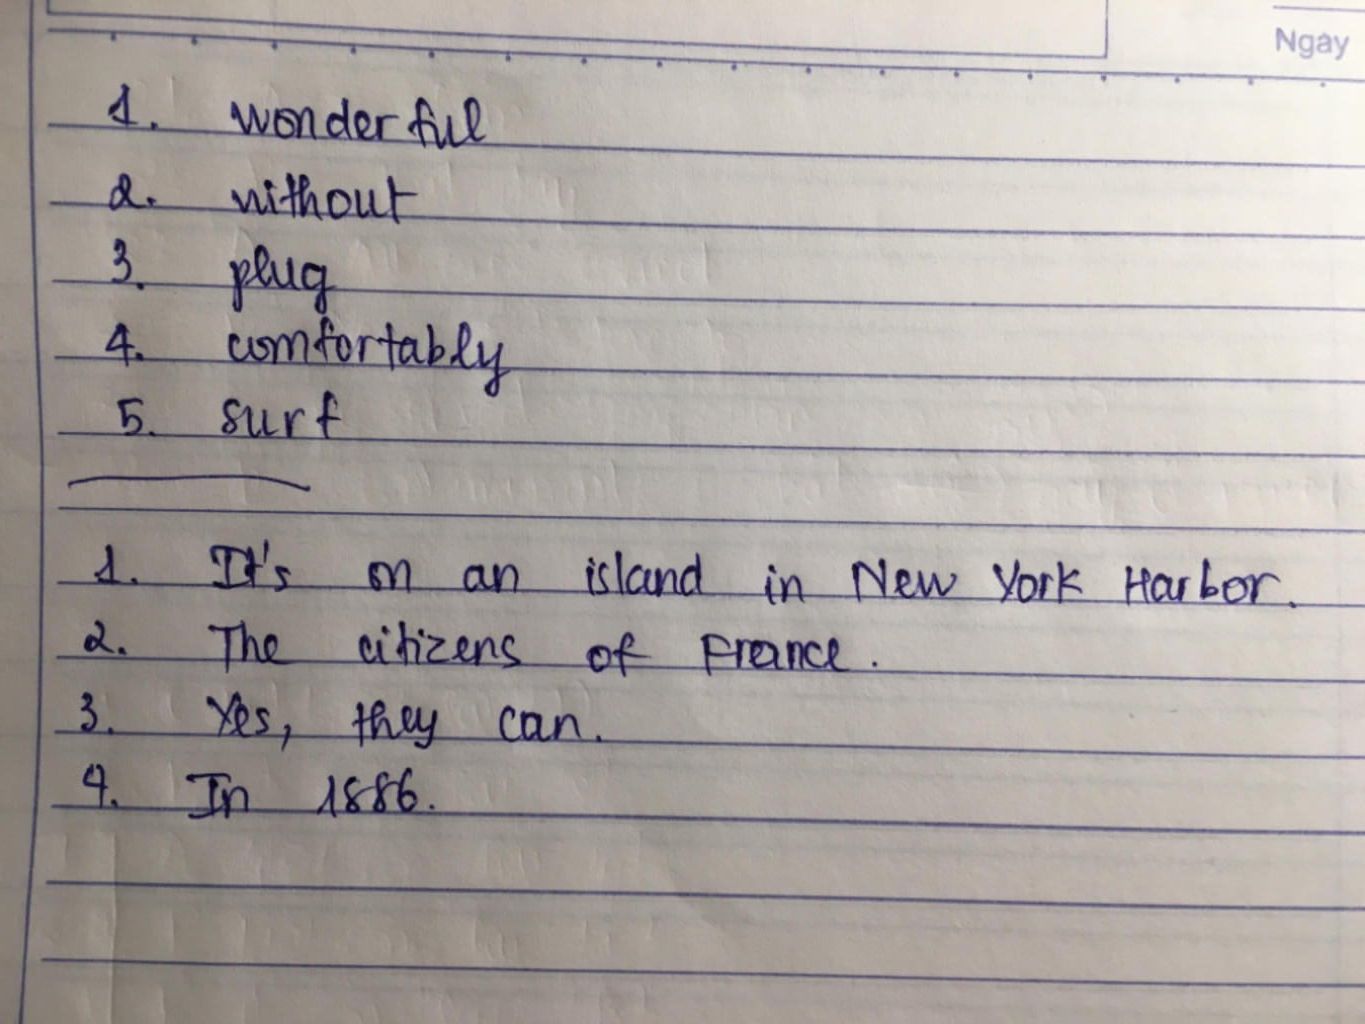 Ngay
1. wonderful
2. without
3. plug
4. comfortably
5. surf
1. It's on an island in New York Harbor.
2. The citizens of France.
3. Yes, they can.
4. In 1886.